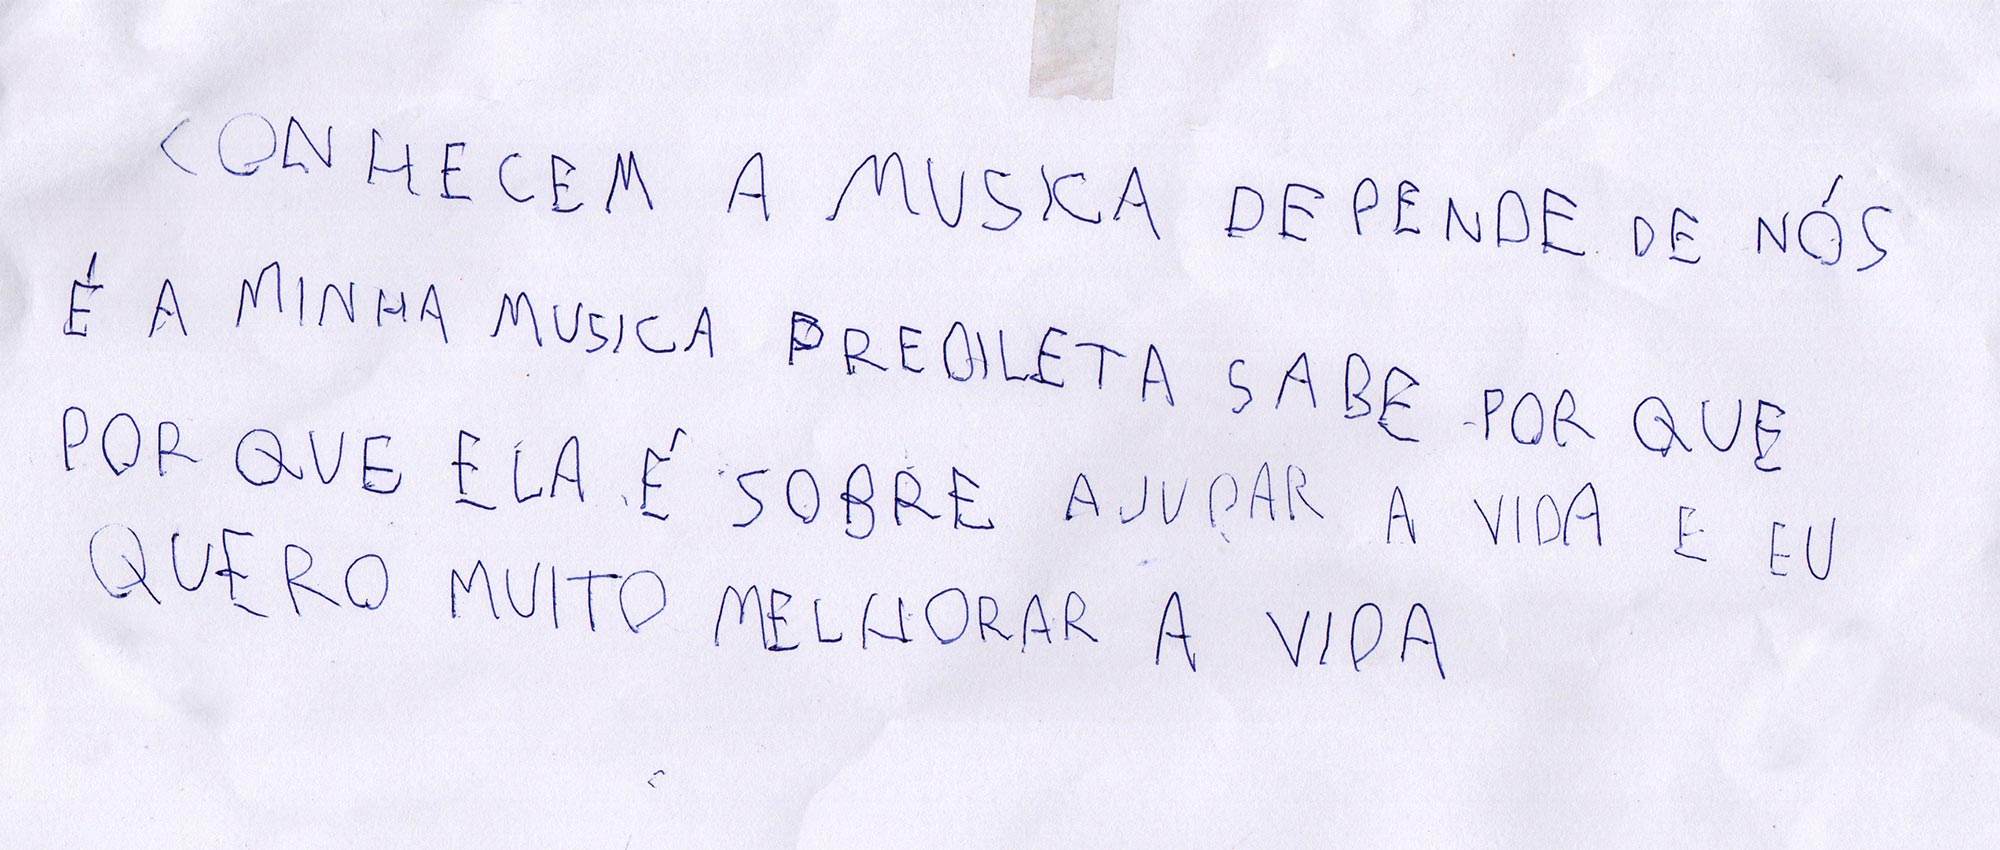 CONHECEM A MUSICA DEPENDE DE NÓS
É A MINHA MUSICA PREDILETA SABE POR QUE
POR QUE ELA É SOBRE AJUDAR A VIDA E EU
QUERO MUITO MELHORAR A VIDA